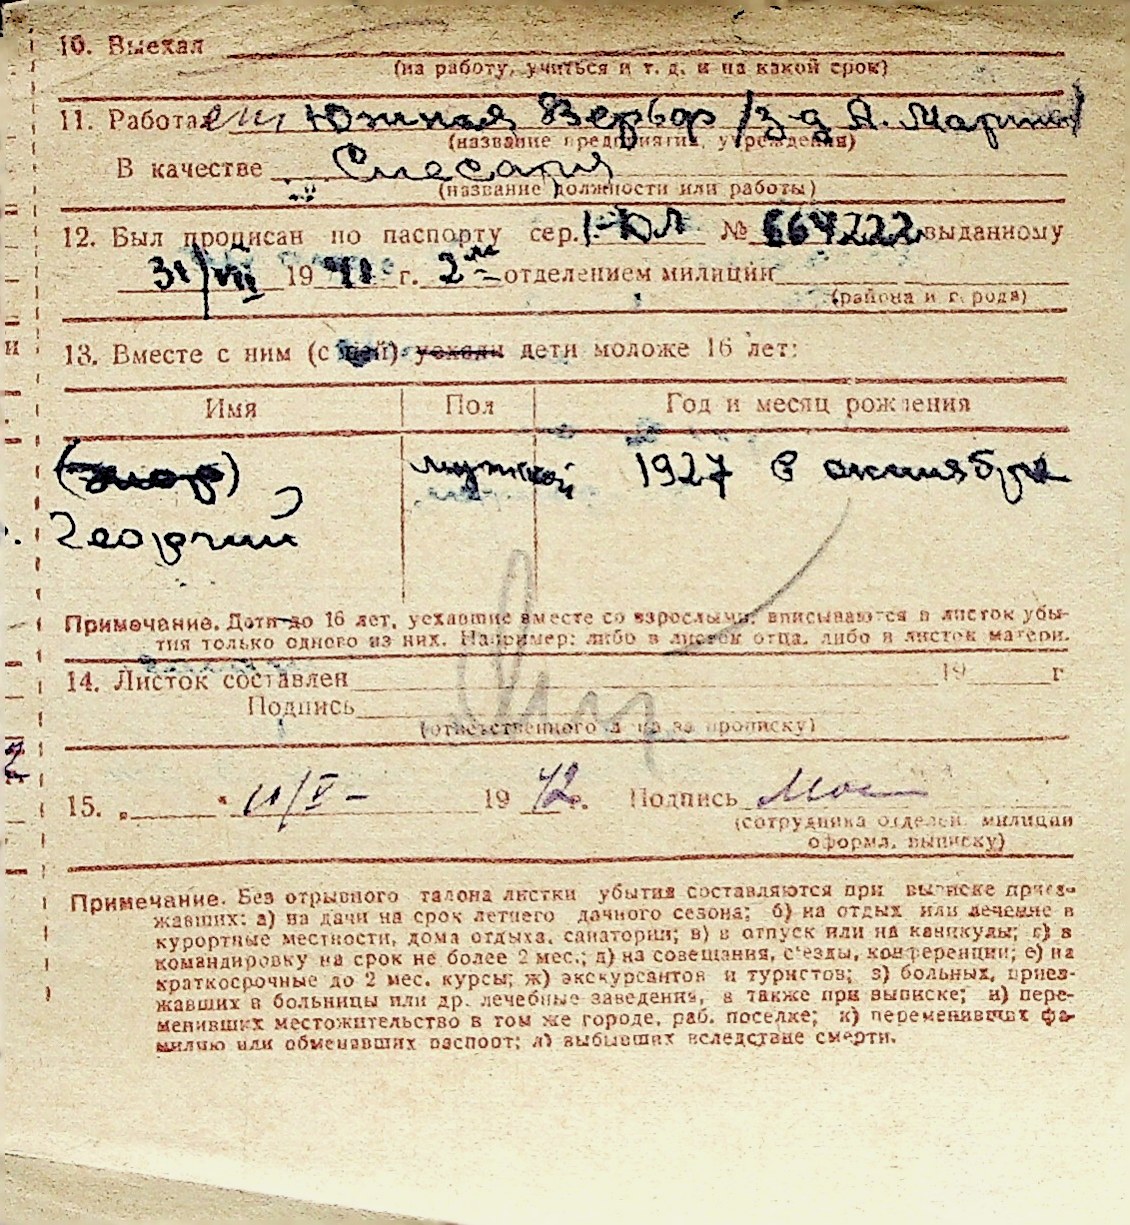 10. Выехал
(на работу, учиться и т. д. и на какой срок)
11. Работает Южная Верфь /з-д А. Марти/
(название предприятия, учреждения)
В качестве Слесаря
(название должности или работы)
12. Был прописан по паспорту сер. I-ЮЛ № 664222 выданному
31/VII 1941 г. 2 м отделением милиции
(района и города)
13. Вместе с ним (с ней) уехали дети моложе 16 лет:
Имя Пол Год и месяц рождения
мужской 1927 в октябре
Георгий
Примечание. Дети до 16 лет, уехавшие вместе со взрослыми, вписываются в листок убы-
тия только одного из них. Например: либо в листок отца, либо в листок матери.
14. Листок составлен 19 г
Подпись
(ответственного лица за прописку)
15. „ “ 11/V – 1942 г. Подпись
(сотрудника отделен. милиции
оформл. выписку)
Примечание. Без отрывного талона листки убытия составляются при выписке приез-
жавших: а) на дачи на срок летнего дачного сезона; б) на отдых или лечение в
курортные местности, дома отдыха, санатории; в) в отпуск или на каникулы; г) в
командировку на срок не более 2 мес.; д) на совещания, съезды, конференции; е) на
краткосрочные до 2 мес. курсы; ж) экскурсантов и туристов; з) больных, приез-
жавших в больницы или др. лечебные заведения, а также при выписке; и) пере-
менивших местожительство в том же городе, раб. поселке; к) переменивших фа-
милию или обменявших паспорт; л) выбывших вследствие смерти.